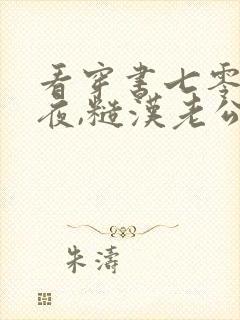 看穿书七零
夜,糙汉老公
朱涛